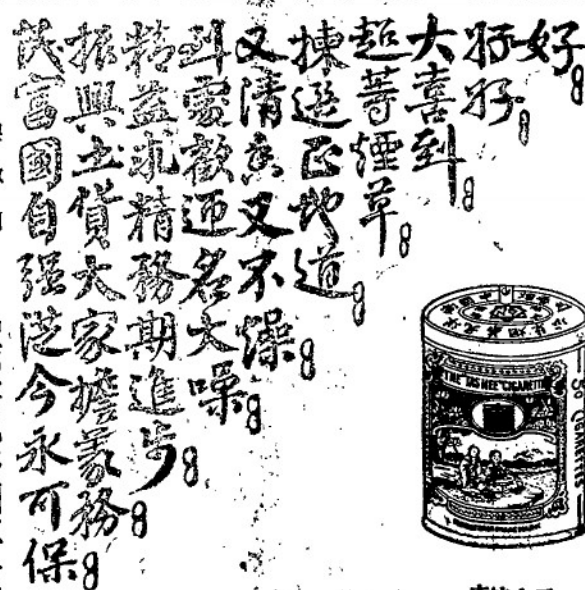 好。
好好。
大喜到。
超等煙草。
揀選正地道。
又清香又不燥。
到處歡迎名大噪。
精益求精務期進步。
振興土貨大家擔義務。
民富國自强從今永可保。
50 CIGARETTES